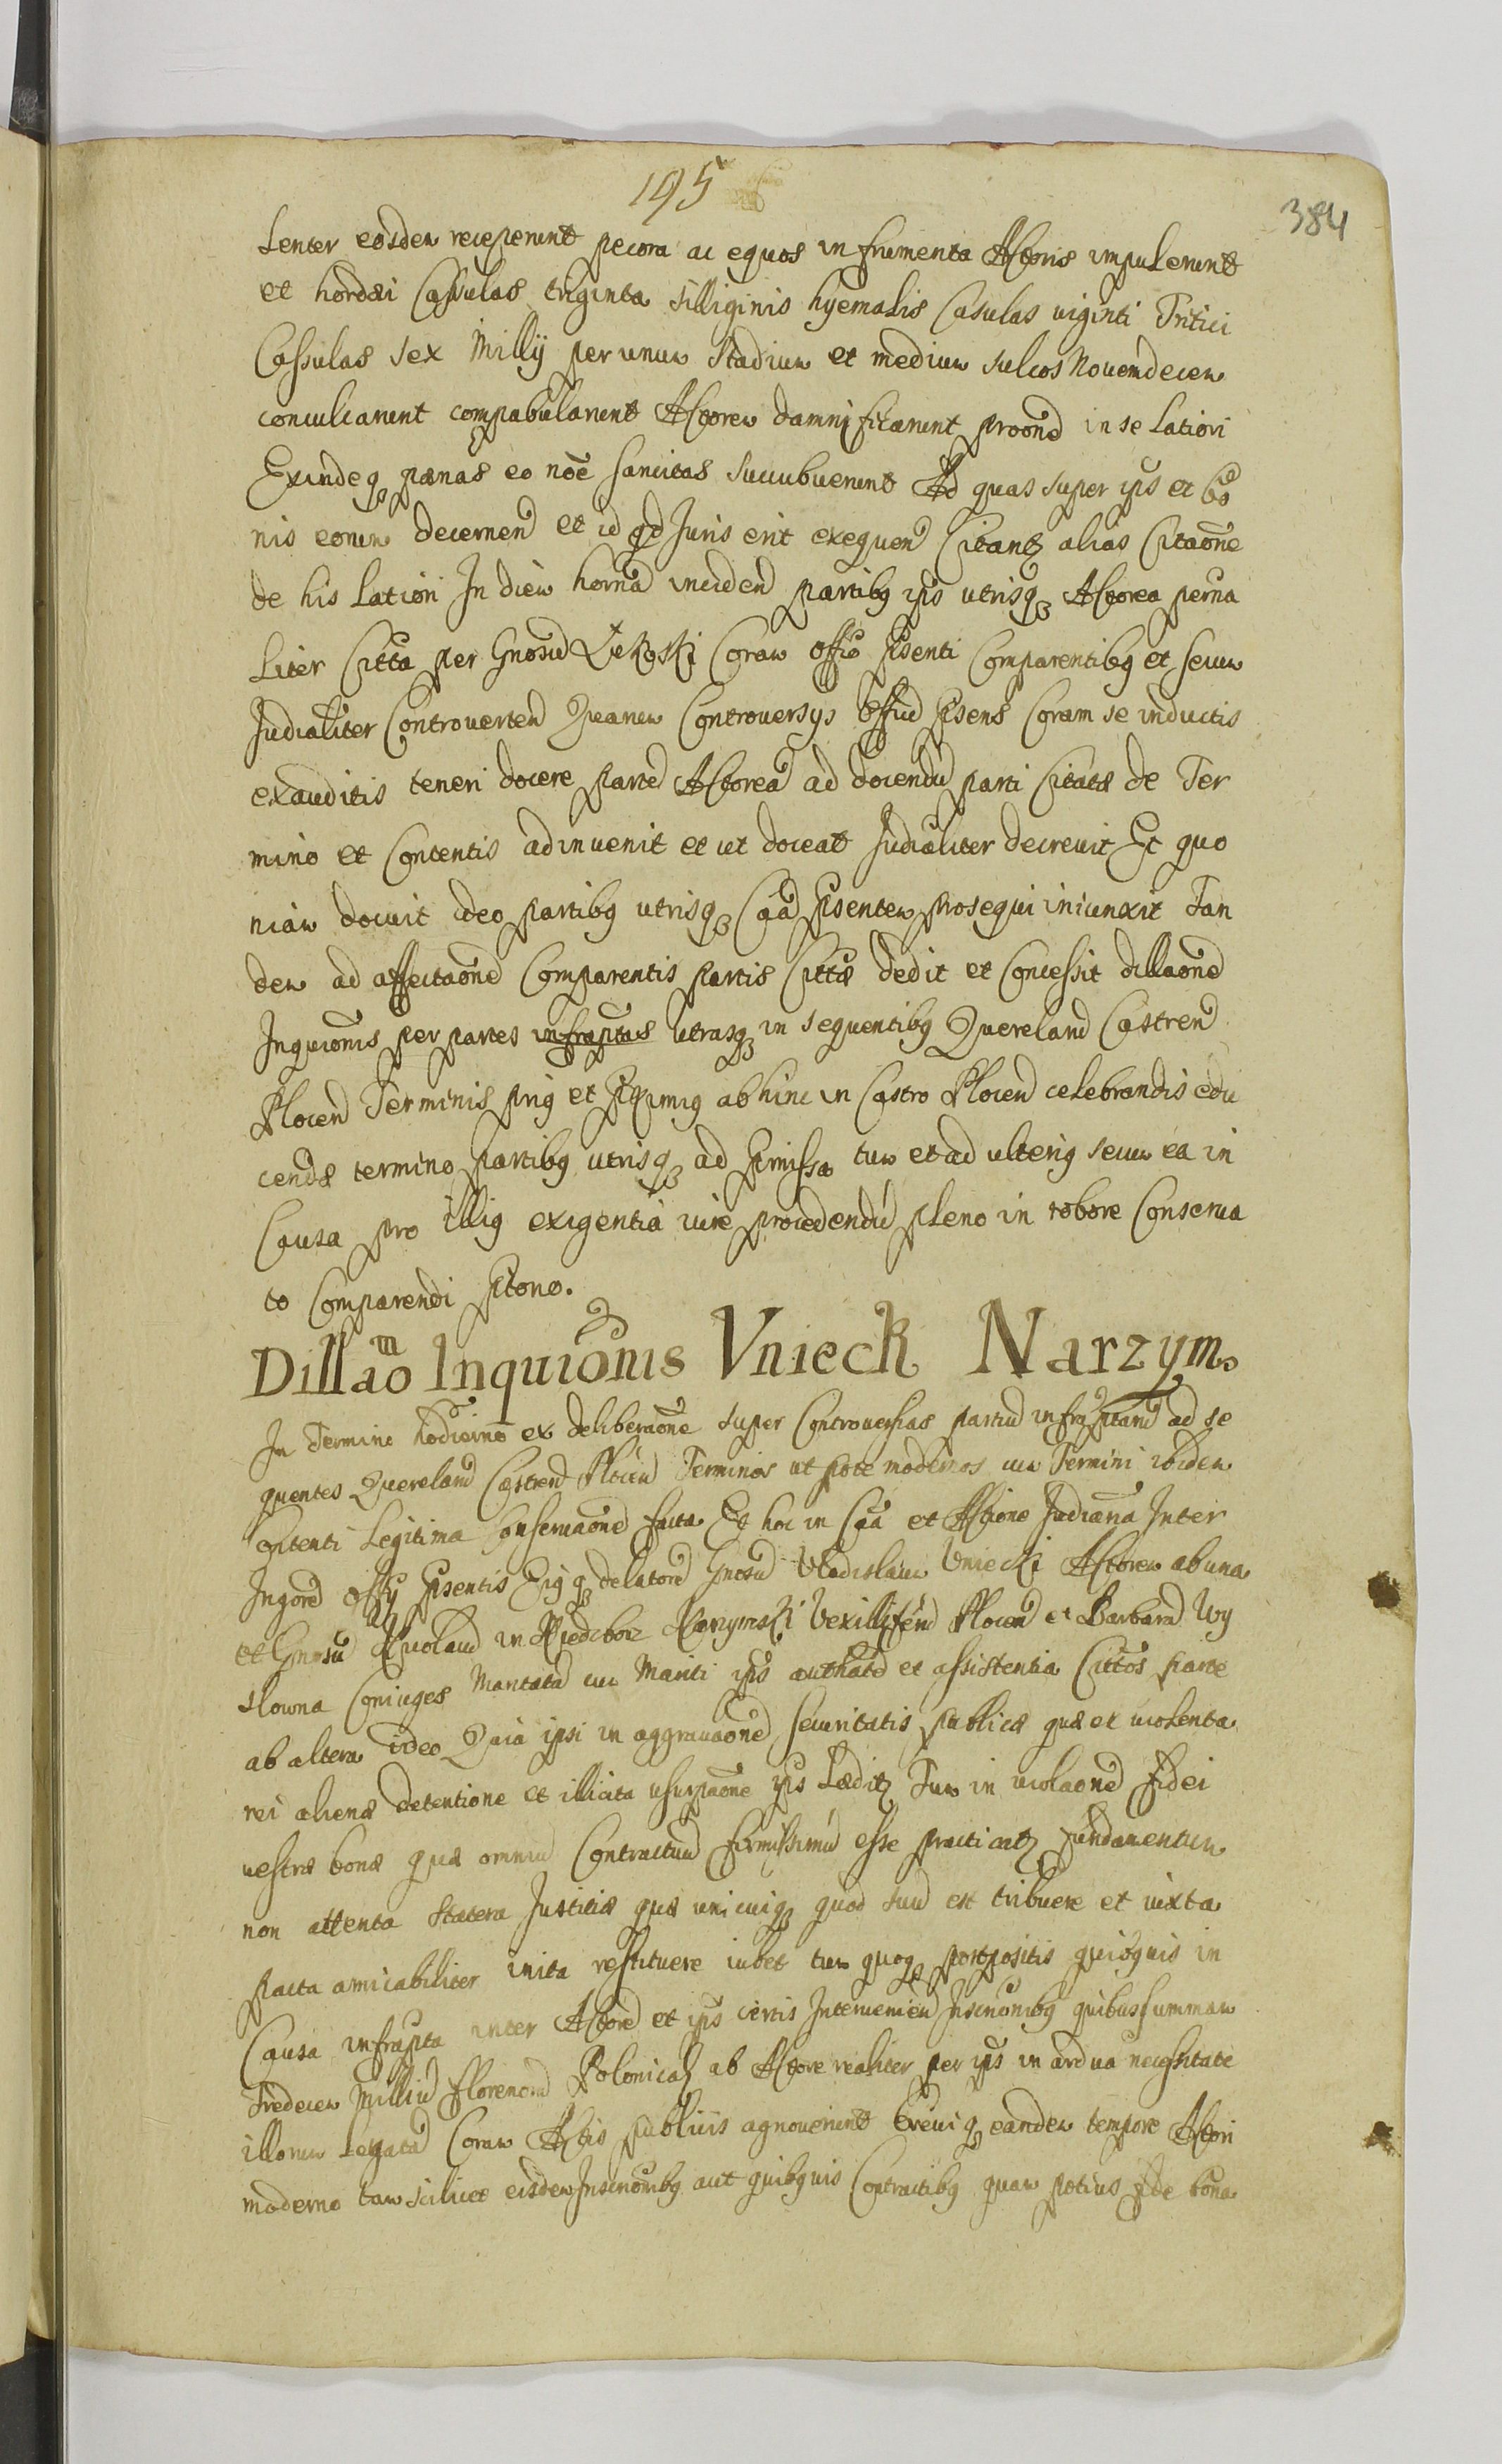 195
384
Lenter eosdem receperunt pecora ac equos in frumenta Actoris impulerunt
et hordei Cassulas triginta silliginis hyemalis Casulas viginti Tritici
Cassulas sex Millij per unum Stadium et medium sulcos Novemdecem
conculcarunt compabularunt Actorem damnificarunt proond in se latiori
Exindeq paenas eo noe sancitas succubuerunt Ad quas super ips et bo
nis eorum decernend et id qd Juris erit exequend Citantz alias Citaone
de his latiori In diem hornd incidend partibq ips utrisq Actorea perna
liter Citta per Gnosud Coram offo psenti Comparentibq et secum
Judialiter Controverten Quarum Controversys Offiud psens Coram se inductis
exauditis teneri docere parte Actorea ad docendu parti Citatae de Ter
mino et Contentis adinvenit et ut doceat Judialiter decrevit Et quo
niam docuit ideo partibq utrisq Caa psentem prosequi iniunxit Tan
dem ad affectaone Comparentis partis Cittae dedit et Concessit dillaone
Inquionis per partes infraptas utrasq in sequentibq Quereland Castrend
Plocen Terminis priq et pximiq abhinc in Castro Plocen celebrandis edu
cendae termino partibq utrisq ad pmissa tum et ad ulteriq secum ea in
Causa pro illiq exigentia iure procedendu pleno in robore Conserva
to Comparendi ptono.
Dillaom Inquionis Vnieck Narzym.
In Termino hodierno ex deliberaone super Controversias partiu infraptaru ad se
quentes Quereland Castrend Plocen Terminos ut pote modernos cum Termini ibidem
Contenti Legitima Conservaone facta Et hoc in Caa et Actione Judiaria Inter
Ingord offy psentis Eiqq delatore Gnosu Vladislaum Vniecki Actorem ab una
et Gnosu in Narzymski Vexilliferu Plocen et Barbara Wy
slowna Coniuges Maritata cum Mariti ips authate et assistentia Cittos parte
ab altera ideo Quia ipsi in aggravaone securitatis publicae quae ex violenta
rei alienae detentione et illicita usurpaone ips Laeditz Tum in violaone fidei
vestrae bonae quae omniu Contractuu firmissimu esse practicatz fundamentum
non attenta Statera Justitiae quae unicuiq quod suu est tribuere et iuxta
pacta amicabiliter inita restituere iubet tum quoq postpositis quibqvis in
Causa infrapta inter Actore et ips certis Intervenien Inscrionibq quibus summam
Tredecem Milliu florenoru Polonical ab Actore realiter per ips in ardua necessitate
illorum Coram Actis publicis agnoverunt breviq eandem tempore Actori
moderno tam scilicet eisdem Inscrionibq aut quibqvis Contractibq quam potius fide bona